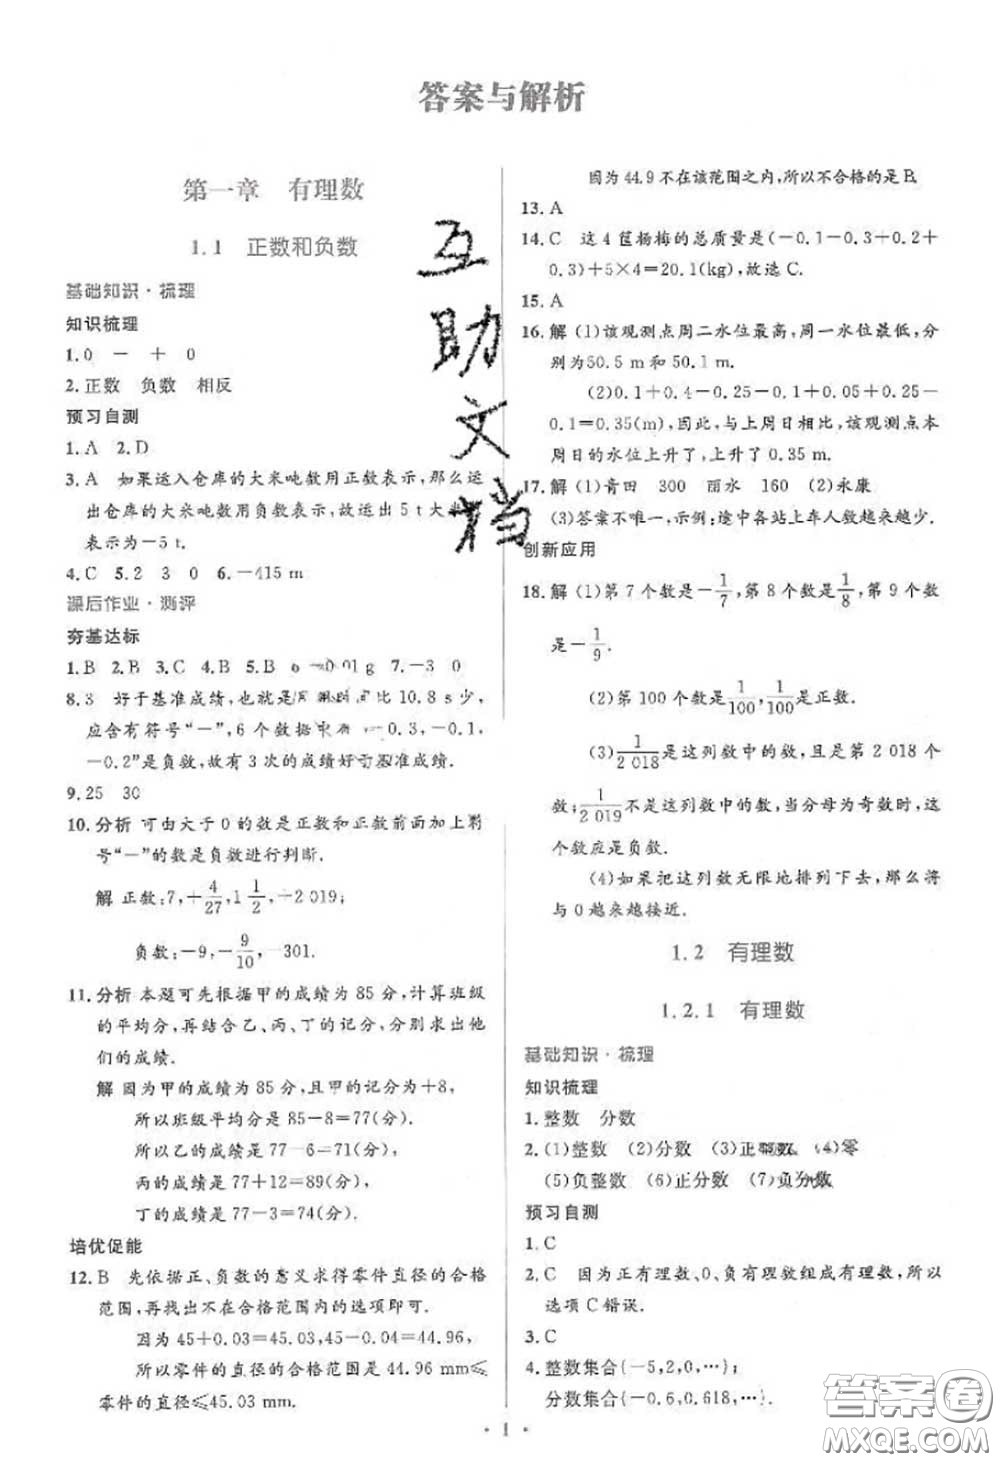 答案与解析
第一章 有理数
1.1 正数和负数
基础知识·梳理
知识梳理
1.0 － ＋ 0
2.正数 负数 相反
预习自测
1.A 2.D
3.A 如果运入仓库的大米吨数用正数表示,那么运
出仓库的大米吨数用负数表示,故运出5 t大
表示为－5 t.
4.C 5.2 3 0 6.－415 m
课后作业·测评
夯基达标
1.B 2.B 3.C 4.B 5.B 6 0.01 g 7.－3 0
8.3 好于基准成绩,也就是 比10.8 s少,
应含有符号“－”,6个数据中 －0.3,－0.1,
－0.2”是负数,故有3次的成绩好于基准成绩.
9.25 30
10.分析 可由大于0的数是正数和正数前面加上符
号“－”的数是负数进行判断.
解 正数:7,＋4/27,1 1/2,－2 019;
负数:－9,－9/10,－301.
11.分析 本题可先根据甲的成绩为85分,计算班级
的平均分,再结合乙、丙、丁的记分,分别求出他
们的成绩.
解 因为甲的成绩为85分,且甲的记分为＋8,
所以班级平均分是85－8＝77(分).
所以乙的成绩是77－6＝71(分),
丙的成绩是77＋12＝89(分),
丁的成绩是77－3＝74(分).
培优促能
12.B 先依据正、负数的意义求得零件直径的合格
范围,再找出不在合格范围内的选项即可.
因为45＋0.03＝45.03,45－0.04＝44.96,
所以零件的直径的合格范围是44.96 mm≤
零件的直径≤45.03 mm.
因为44.9不在该范围之内,所以不合格的是B.
13.A
14.C 这4筐杨梅的总质量是(－0.1－0.3＋0.2＋
0.3)＋5×4＝20.1(kg),故选C.
15.A
16.解 (1)该观测点周二水位最高,周一水位最低,分
别为50.5 m和50.1 m.
(2)0.1＋0.4－0.25－0.1＋0.05＋0.25－
0.1＝0.35(m),因此,与上周日相比,该观测点本
周日的水位上升了,上升了0.35 m.
17.解 (1)青田 300 丽水 160 (2)永康
(3)答案不唯一,示例:途中各站上车人数越来越少.
创新应用
18.解 (1)第7个数是－1/7,第8个数是1/8,第9个数
是－1/9.
(2)第100个数是1/100,1/100是正数.
(3)1/2 018是这列数中的数,且是第2 018个
数;1/2 019不是这列数中的数,当分母为奇数时,这
个数应是负数.
(4)如果把这列数无限地排列下去,那么将
与0越来越接近.
1.2 有理数
1.2.1 有理数
基础知识·梳理
知识梳理
1.整数 分数
2.(1)整数 (2)分数 (3)正整数 (4)零
(5)负整数 (6)正分数 (7)负分数
预习自测
1.C
2.C 因为正有理数、0、负有理数组成有理数,所以
选项C错误.
3.C
4.整数集合{－5,2,0,…};
分数集合{－0.6,0.618,…}.
· 1 ·
互
助
文
档
答案圈
MXQE.COM